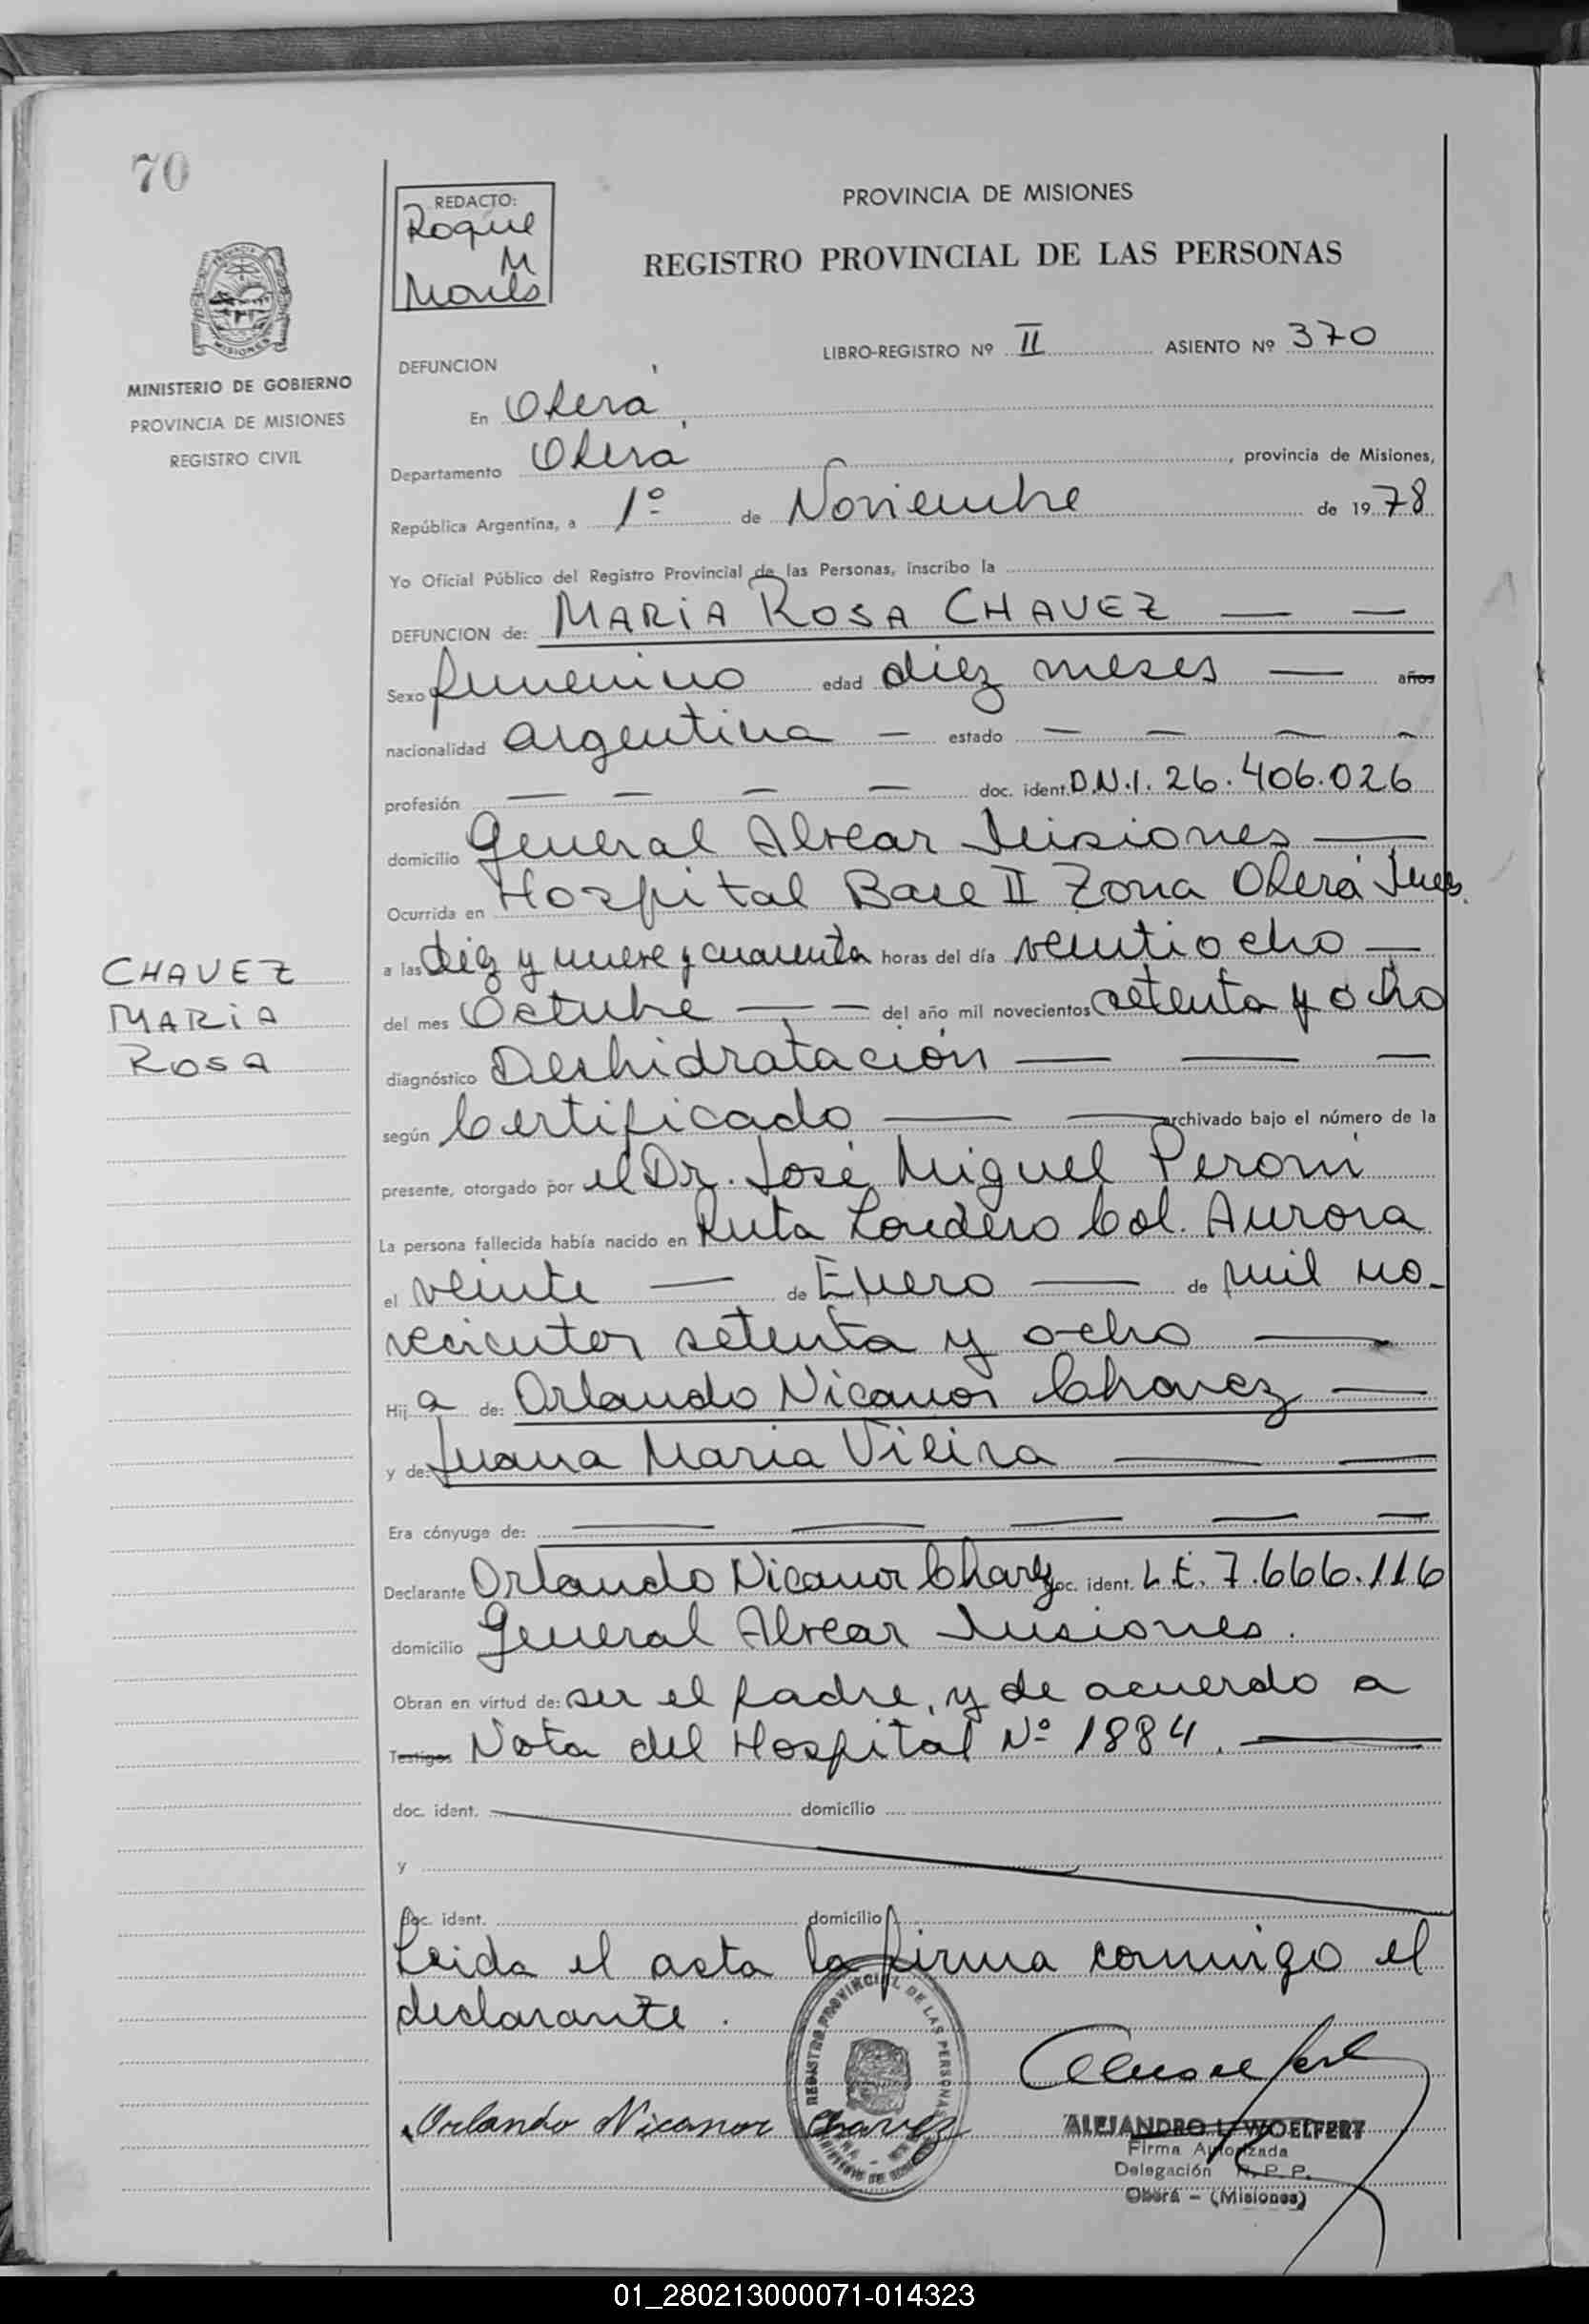 70
REDACTO:
Roque
M
PROVINCIA DE MISIONES
REGISTRO PROVINCIAL DE LAS PERSONAS
MISIONES
MINISTERIO DE GOBIERNO
PROVINCIA DE MISIONES
REGISTRO CIVIL
LIBRO-REGISTRO Nº II ASIENTO Nº 370
DEFUNCION
En Oberá
Departamento Oberá, provincia de Misiones,
República Argentina, a 1º de Noviembre de 1978
Yo Oficial Público del Registro Provincial de las Personas, inscribo la
DEFUNCION de: MARIA ROSA CHAVEZ — —
Sexo femenino edad diez meses — años
nacionalidad argentina — estado — — — —
profesión — — — — doc. ident. D.N.I. 26.406.026
domicilio General Alvear Misiones —
Ocurrida en Hospital Base II Zona Oberá Mnes.
a las diez y nueve y cuarenta horas del día veintiocho —
del mes Octubre — — del año mil novecientos setenta y ocho
diagnóstico Deshidratación — — —
según Certificado — — archivado bajo el número de la
presente, otorgado por el Dr. José Miguel Peroni
La persona fallecida había nacido en Ruta Londero Col. Aurora
el veinte — de Enero — de mil no-
vecientos setenta y ocho —
Hij a de: Orlando Nicanor Chavez —
y de: Juana Maria Vieira — —
Era cónyuge de: — — — — —
Declarante Orlando Nicanor Chavez doc. ident. L.E. 7.666.116
domicilio General Alvear Misiones.
Obran en virtud de: ser el padre, y de acuerdo a
Testigos Nota del Hospital Nº 1884. —
doc. ident. domicilio
y
doc. ident. domicilio
Leida el acta la firma conmigo el
declarante.
CHAVEZ
MARIA
ROSA
REGISTRO PROVINCIAL DE LAS PERSONAS
Orlando Nicanor Chavez
ALEJANDRO L. WOELFERT
Firma Autorizada
Delegación R.P.P.
Oberá - (Misiones)
01_280213000071-014323